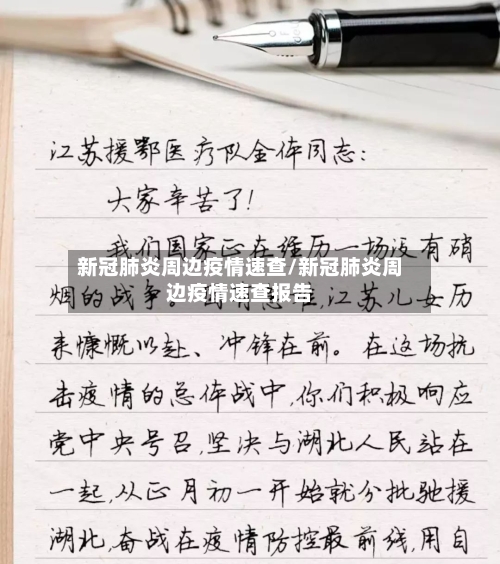 江苏援鄂医疗队全体同志：
大家辛苦了！
我们国家正在经历一场没有硝
新冠肺炎周边疫情速查/新冠肺炎周
边疫情速查报告
烟的战争。江苏儿女历
来慷慨以赴、冲锋在前。在这场抗
击疫情的总体战中,你们积极响应
党中央号召,坚决与湖北人民站在
一起,从正月初一开始就分批驰援
湖北,奋战在疫情防控最前线,用自